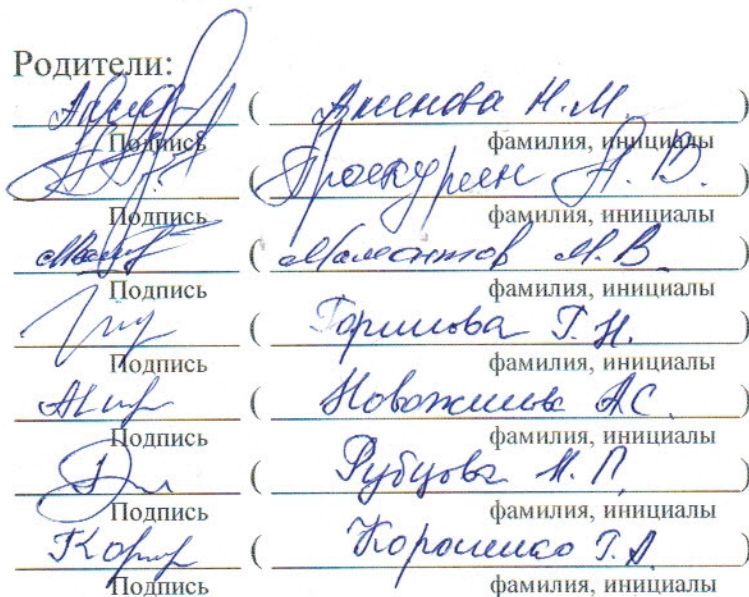 Родители:
( Аксенова Н.М. )
Подпись фамилия, инициалы
( Проскурин А.В. )
Подпись фамилия, инициалы
( Мамонтов М.В )
Подпись фамилия, инициалы
( Горшкова Т.Н. )
Подпись фамилия, инициалы
( Новожилова А.С. )
Подпись фамилия, инициалы
( Рубцова Н.П. )
Подпись фамилия, инициалы
( Короленко Т.А )
Подпись фамилия, инициалы